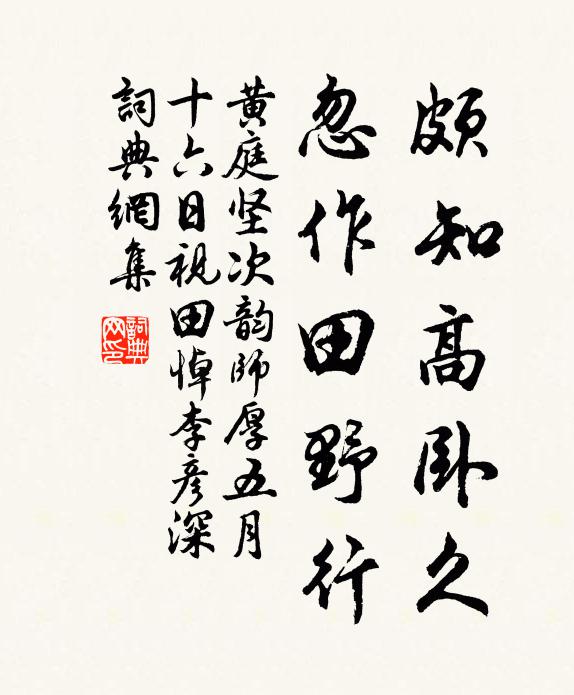 頗知高卧久
忽作田野行
黄庭坚次韵師厚五月
十六日視田悼李彦深
詞典網集
詞典网印